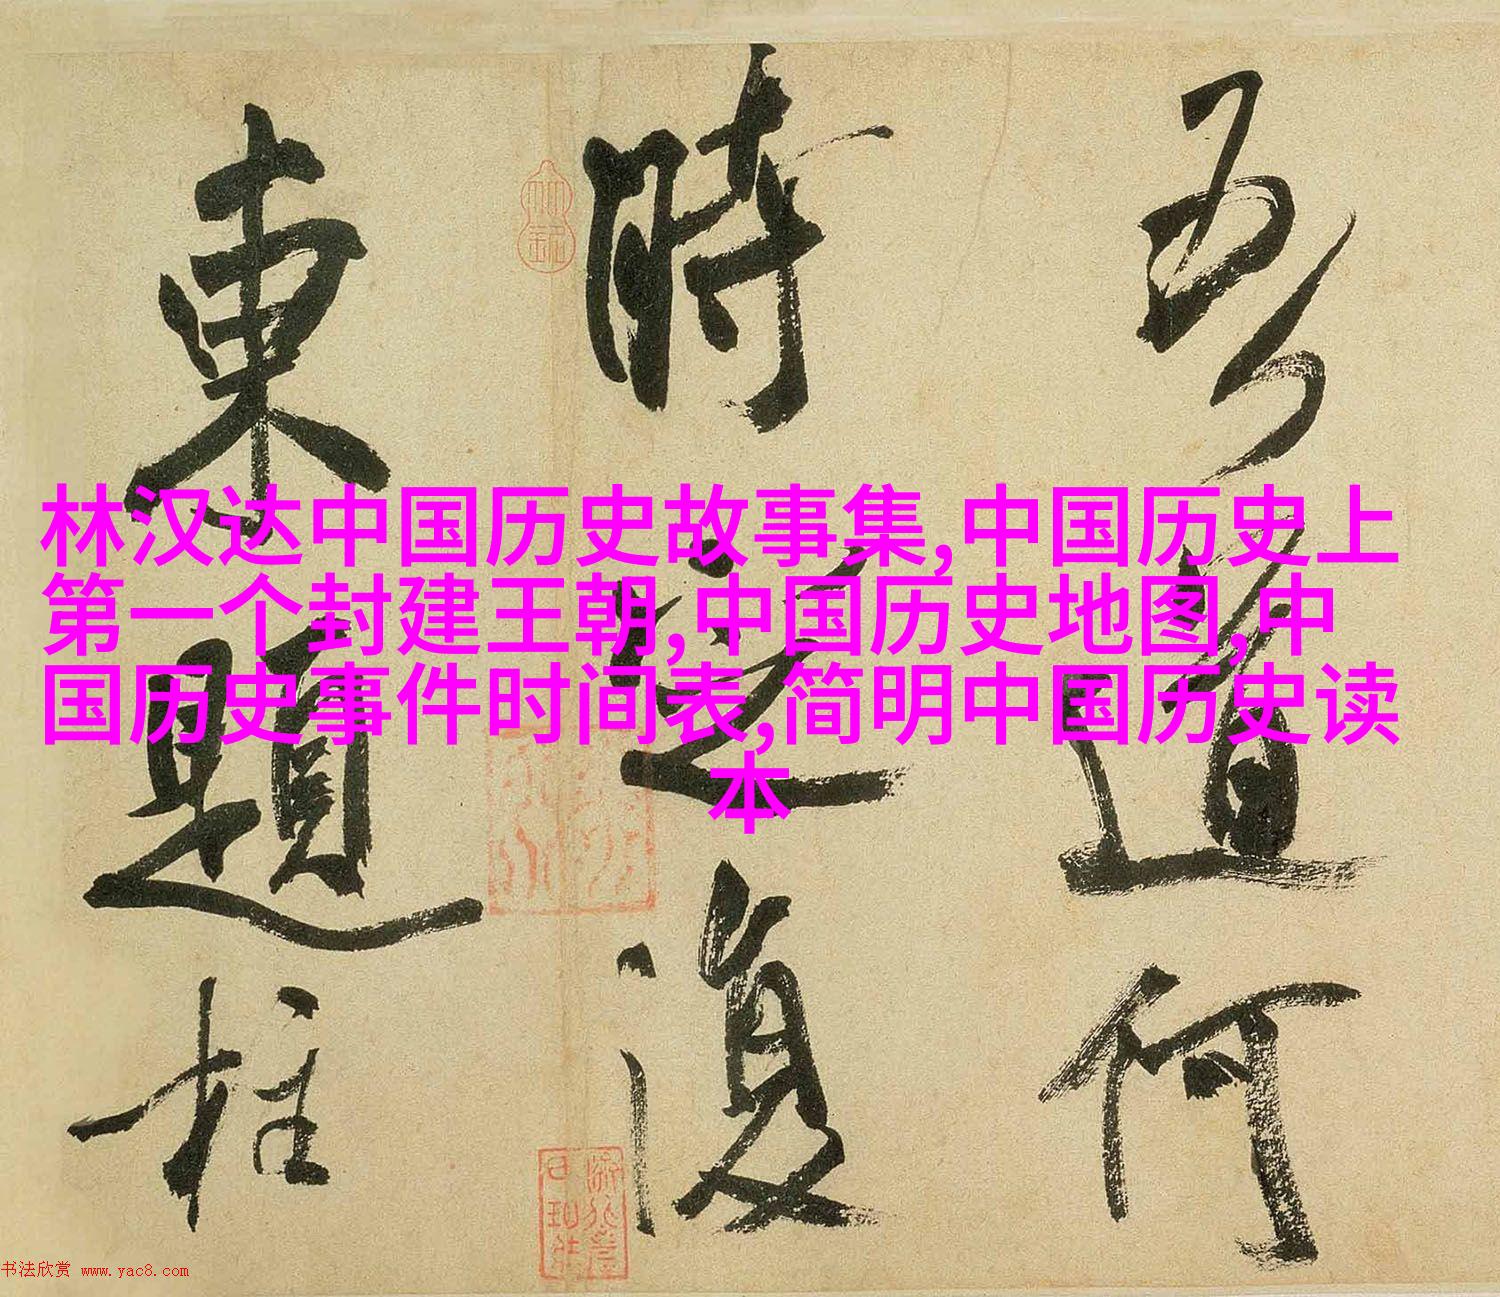 吾道何
時定復
東題柱
林汉达中国历史故事集,中国历史上
第一个封建王朝,中国历史地图,中
国历史事件时间表,简明中国历史读
本
书法欣赏 www.yac8.com